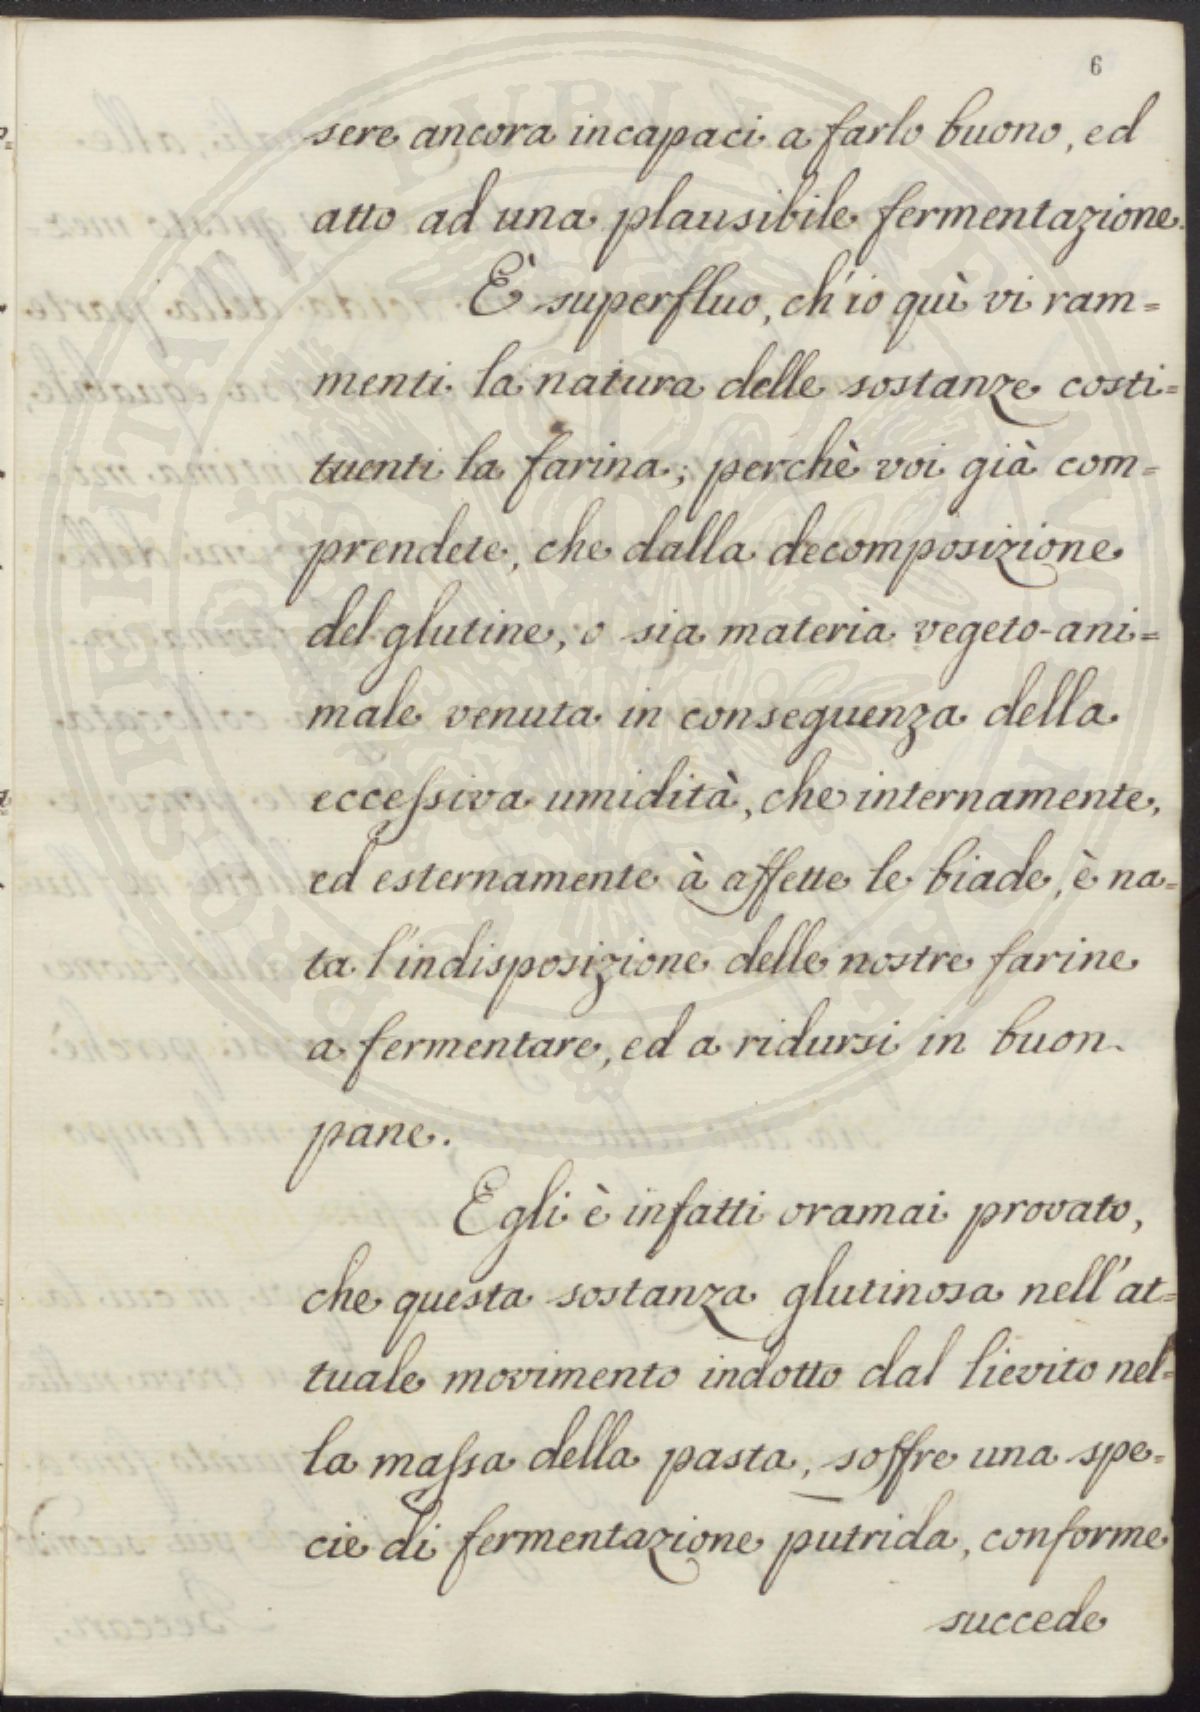 6
sere ancora incapaci a farlo buono, ed
atto ad una plausibile fermentazione.
È superfluo, ch'io quì vi ram=
menti la natura delle sostanze costi=
tuenti la farina; perchè voi già com=
prendete, che dalla decomposizione
del glutine, o sia materia vegeto-ani=
male venuta in conseguenza della
ecceſsiva umidità, che internamente,
ed esternamente à affette le biade, è na=
ta l'indisposizione delle nostre farine
a fermentare, ed a ridursi in buon
pane.
Egli è infatti oramai provato,
che questa sostanza glutinosa nell'at=
tuale movimento indotto dal lievito nel=
la maſsa della pasta, soffre una spe=
cie di fermentazione putrida, conforme
succede